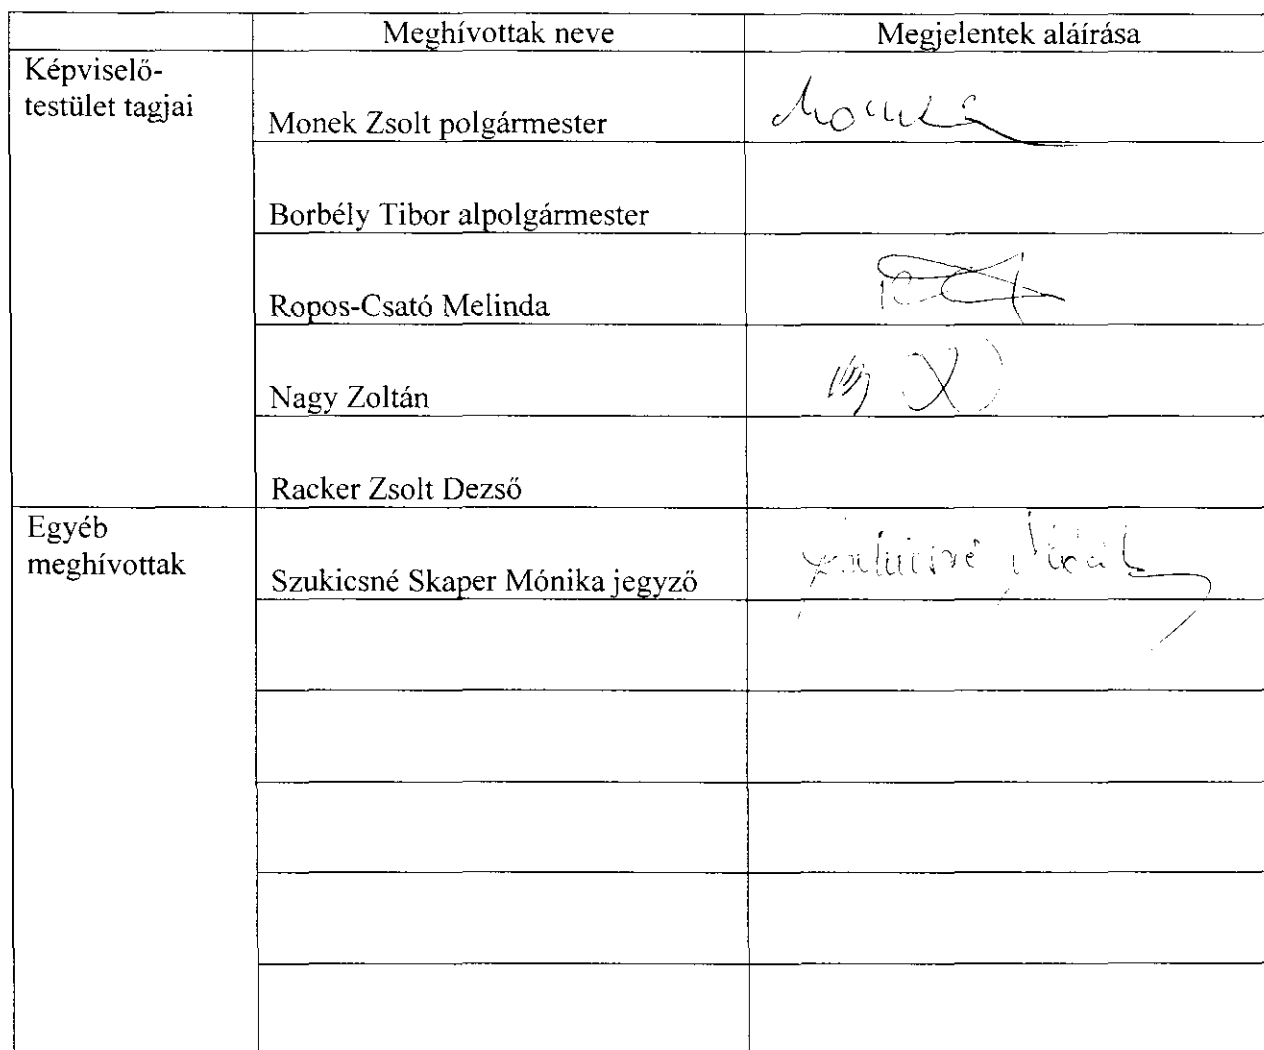 Meghívottak neve
Megjelentek aláírása
Képviselő-
testület tagjai
Monek Zsolt polgármester
Borbély Tibor alpolgármester
Ropos-Csató Melinda
Nagy Zoltán
Racker Zsolt Dezső
Egyéb
meghívottak
Szukicsné Skaper Mónika jegyző